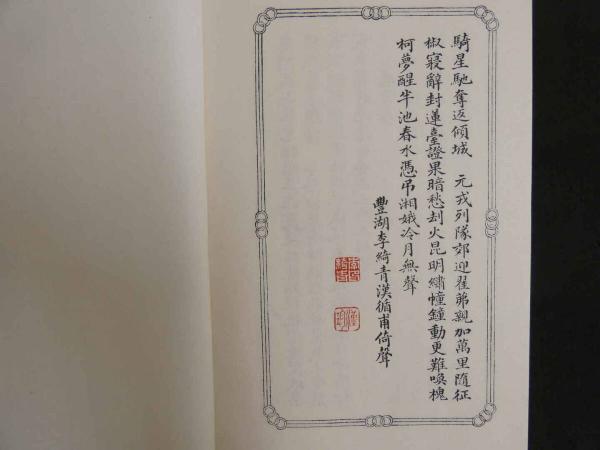 騎星馳奪返傾城　元戎列隊郊迎翟茀親加萬里隨征
椒寢辭封蓮臺證果暗愁刦火昆明繡幢鐘動更難喚槐
柯夢醒半池春水憑弔湘娥冷月無聲
豐湖李綺青漢循甫倚聲